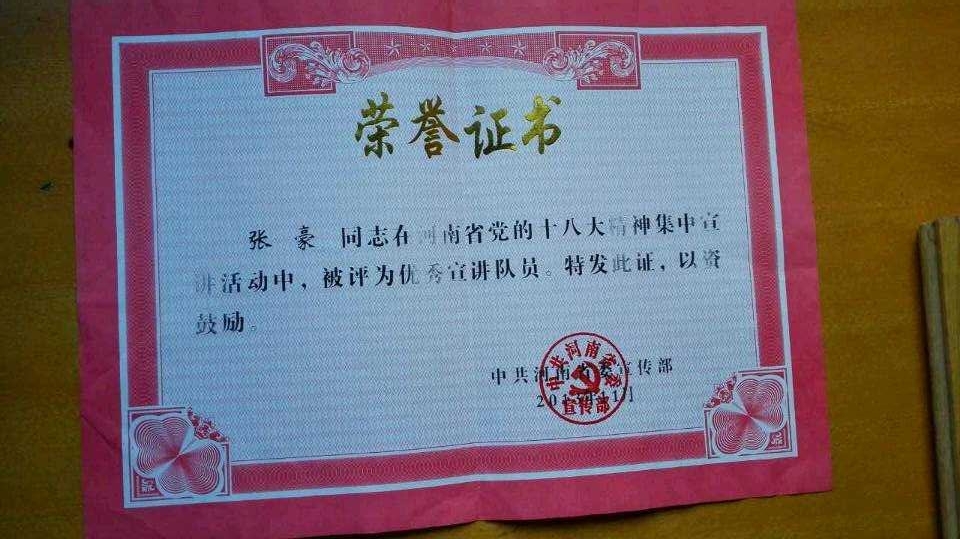 荣誉证书
张豪 同志在河南省党的十八大精神集中宣
讲活动中，被评为优秀宣讲队员。特发此证，以资
鼓励。
中共河南省委宣传部
中共河南省委
宣传部